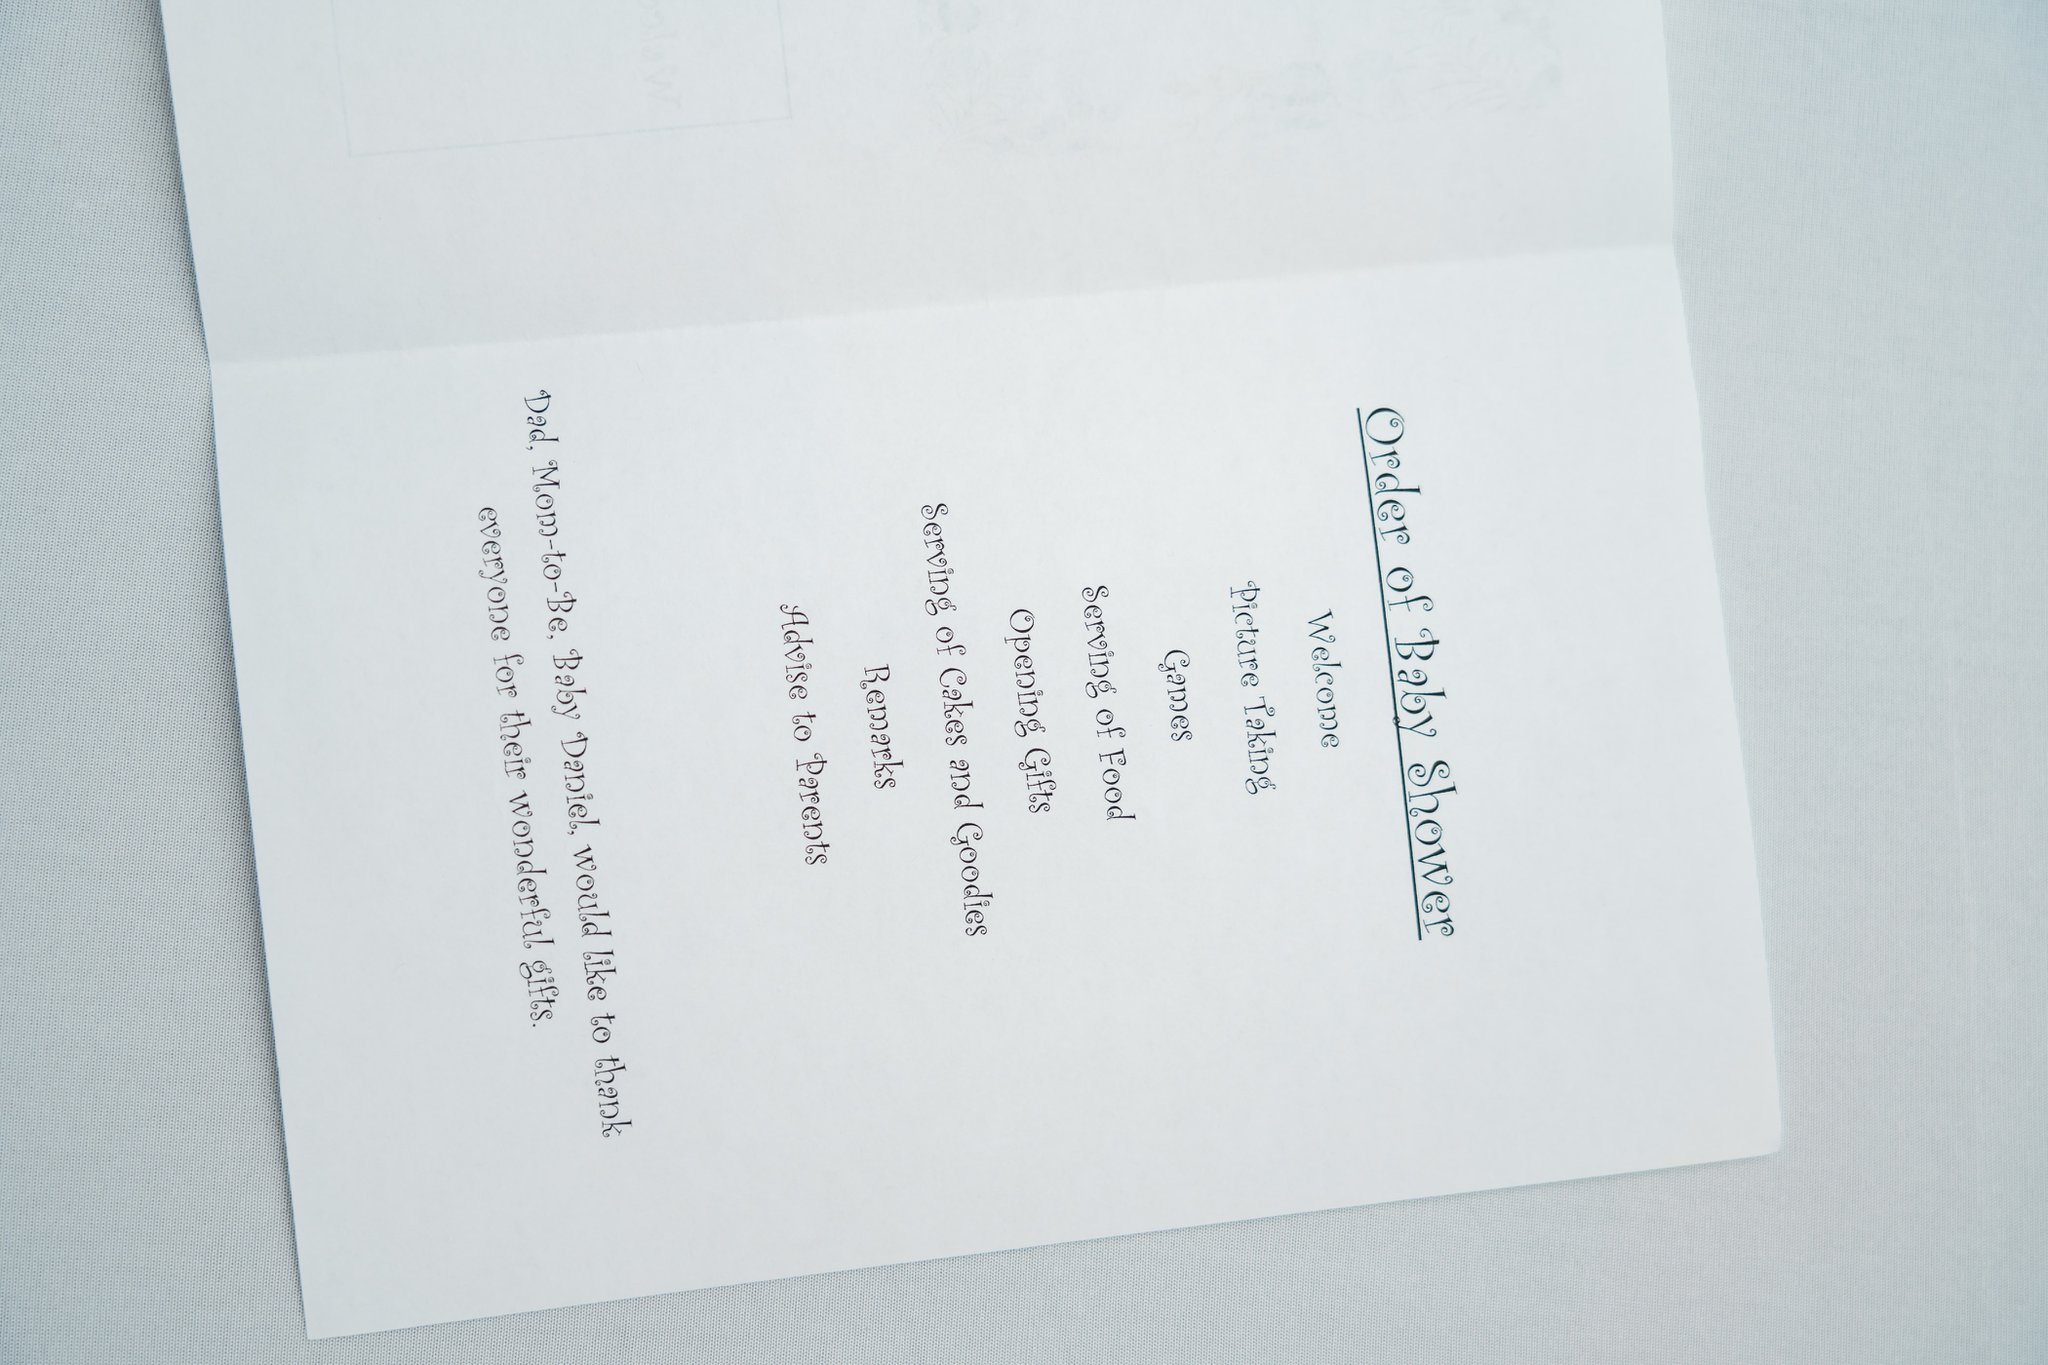 Order of Baby Shower
Welcome
Picture Taking
Games
Serving of Food
Opening Gifts
Serving of Cakes and Goodies
Remarks
Advise to Parents
Dad, Mom-to-Be, Baby Daniel, would like to thank
everyone for their wonderful gifts.